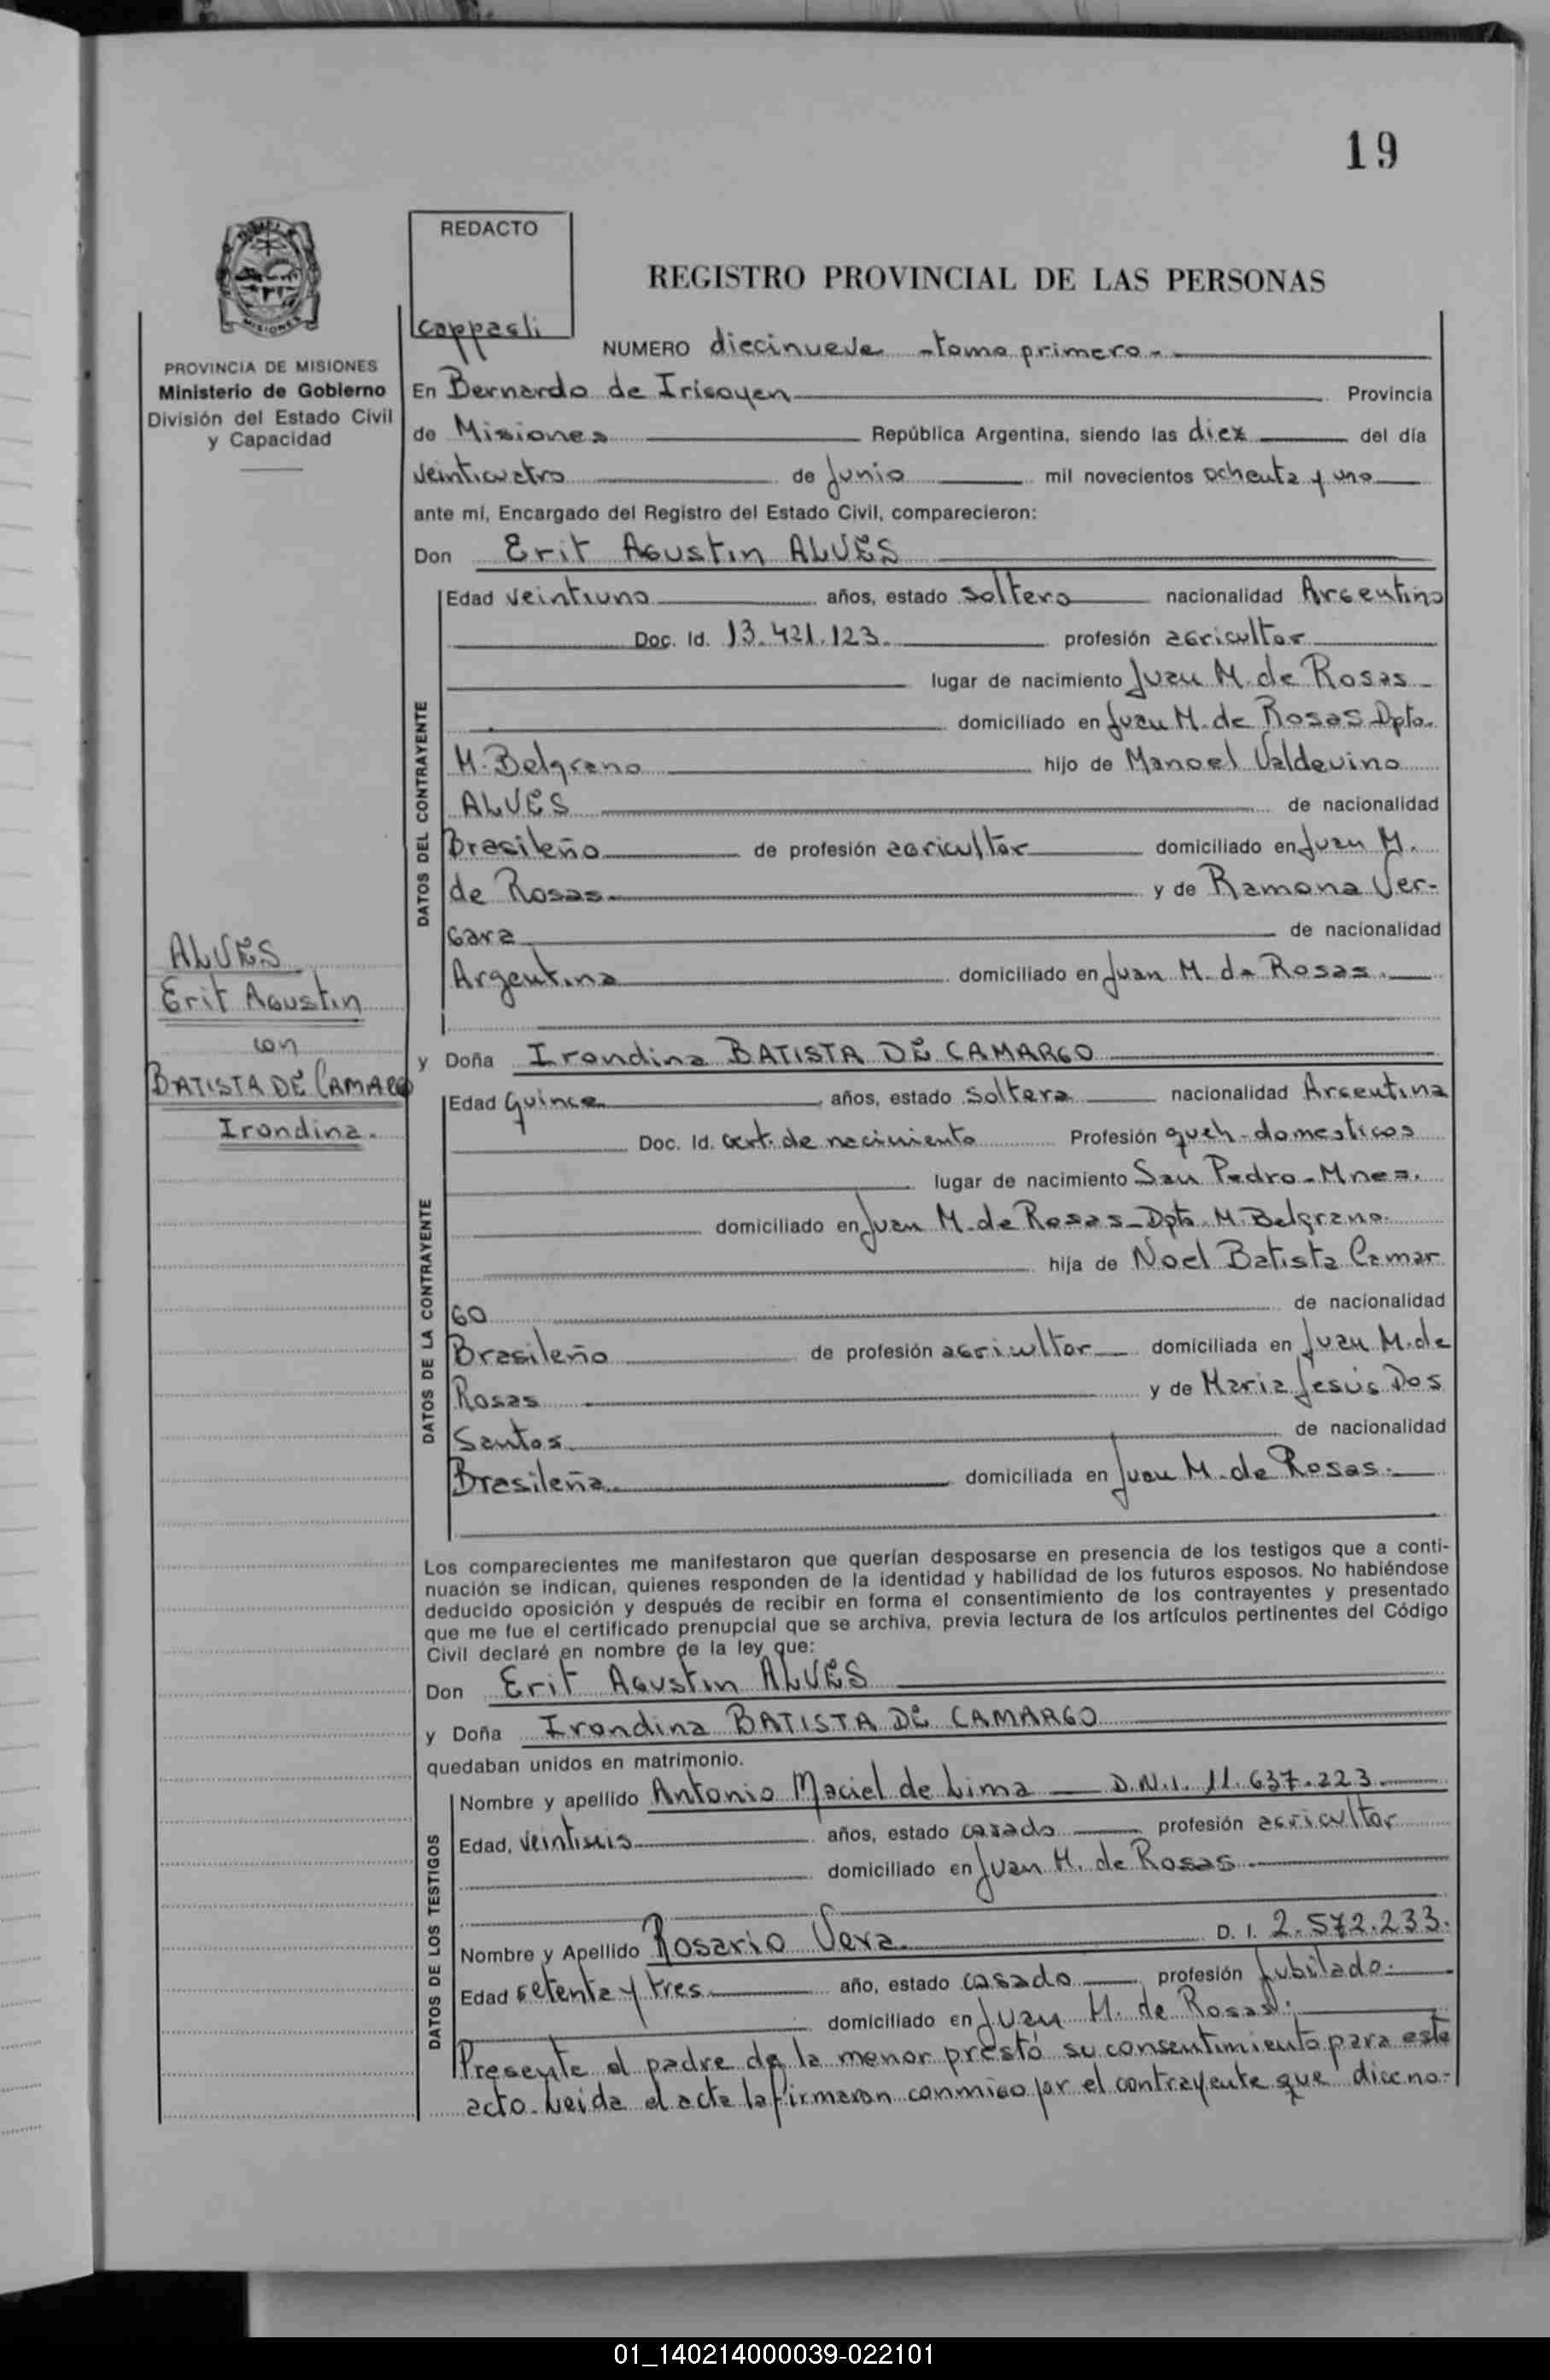 19
REDACTO
REGISTRO PROVINCIAL DE LAS PERSONAS
MISIONES
PROVINCIA DE MISIONES
Ministerio de Gobierno
División del Estado Civil
y Capacidad
NUMERO diecinueve - tomo primero -
En Bernardo de Irigoyen Provincia
de Misiones República Argentina, siendo las diez del día
veinticuatro de Junio mil novecientos ochenta y uno
ante mí, Encargado del Registro del Estado Civil, comparecieron:
Don Erit Agustin ALVES
DATOS DEL CONTRAYENTE
Edad veintiuno años, estado soltero nacionalidad Argentino
Doc. Id. 13.421.123. profesión agricultor
lugar de nacimiento Juan M. de Rosas -
domiciliado en Juan M. de Rosas Dpto.
M. Belgrano hijo de Manoel Valdevino
ALVES de nacionalidad
Brasileño de profesión agricultor domiciliado en Juan M.
de Rosas y de Ramona Ver-
gara de nacionalidad
Argentina domiciliado en Juan M. de Rosas.
ALVES
Erit Agustin
con
BATISTA DE CAMARGO
Irondina.
y Doña Irondina BATISTA DE CAMARGO
DATOS DE LA CONTRAYENTE
Edad Quince años, estado soltera nacionalidad Argentina
Doc. Id. Cert. de nacimiento Profesión queh-domesticos
lugar de nacimiento San Pedro - Mnes.
domiciliado en Juan M. de Rosas - Dpto M. Belgrano.
hija de Noel Batista Camar
go de nacionalidad
Brasileño de profesión agricultor domiciliada en Juan M. de
Rosas y de Maria Jesús Dos
Santos de nacionalidad
Brasileña domiciliada en Juan M. de Rosas.
Los comparecientes me manifestaron que querían desposarse en presencia de los testigos que a conti-
nuación se indican, quienes responden de la identidad y habilidad de los futuros esposos. No habiéndose
deducido oposición y después de recibir en forma el consentimiento de los contrayentes y presentado
que me fue el certificado prenupcial que se archiva, previa lectura de los artículos pertinentes del Código
Civil declaré en nombre de la ley que:
Don Erit Agustin ALVES
y Doña Irondina BATISTA DE CAMARGO
quedaban unidos en matrimonio.
DATOS DE LOS TESTIGOS
Nombre y apellido Antonio Maciel de Lima D.N.I. 11.637.223.
Edad, veintiseis años, estado casado profesión agricultor
domiciliado en Juan M. de Rosas
Nombre y Apellido Rosario Vera D. I. 2.572.233.
Edad setenta y tres año, estado casado profesión Jubilado.
domiciliado en Juan M. de Rosas.
Presente el padre de la menor prestó su consentimiento para este
acto. Leida el acta la firmaron conmigo por el contrayente que dice no-
01_140214000039-022101